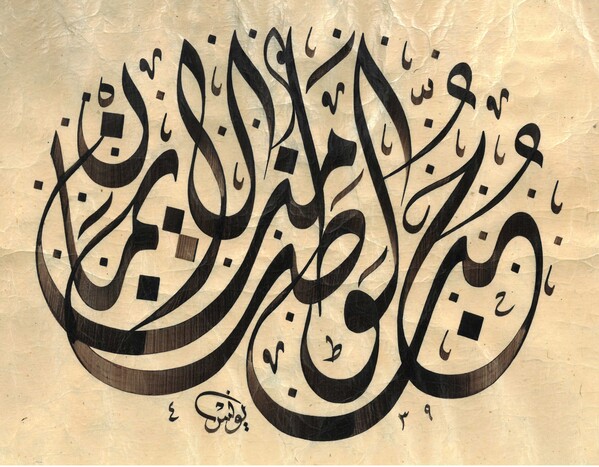 حب الوطن من الإيمان
٣٩ يونس ٤